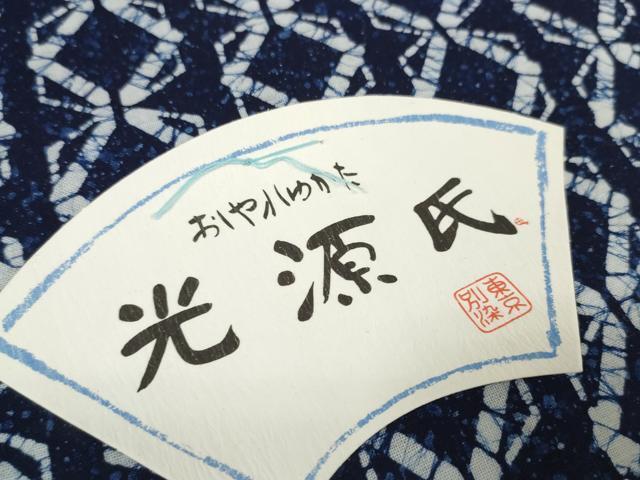 おしやれゆかた
光源氏
東京
別染